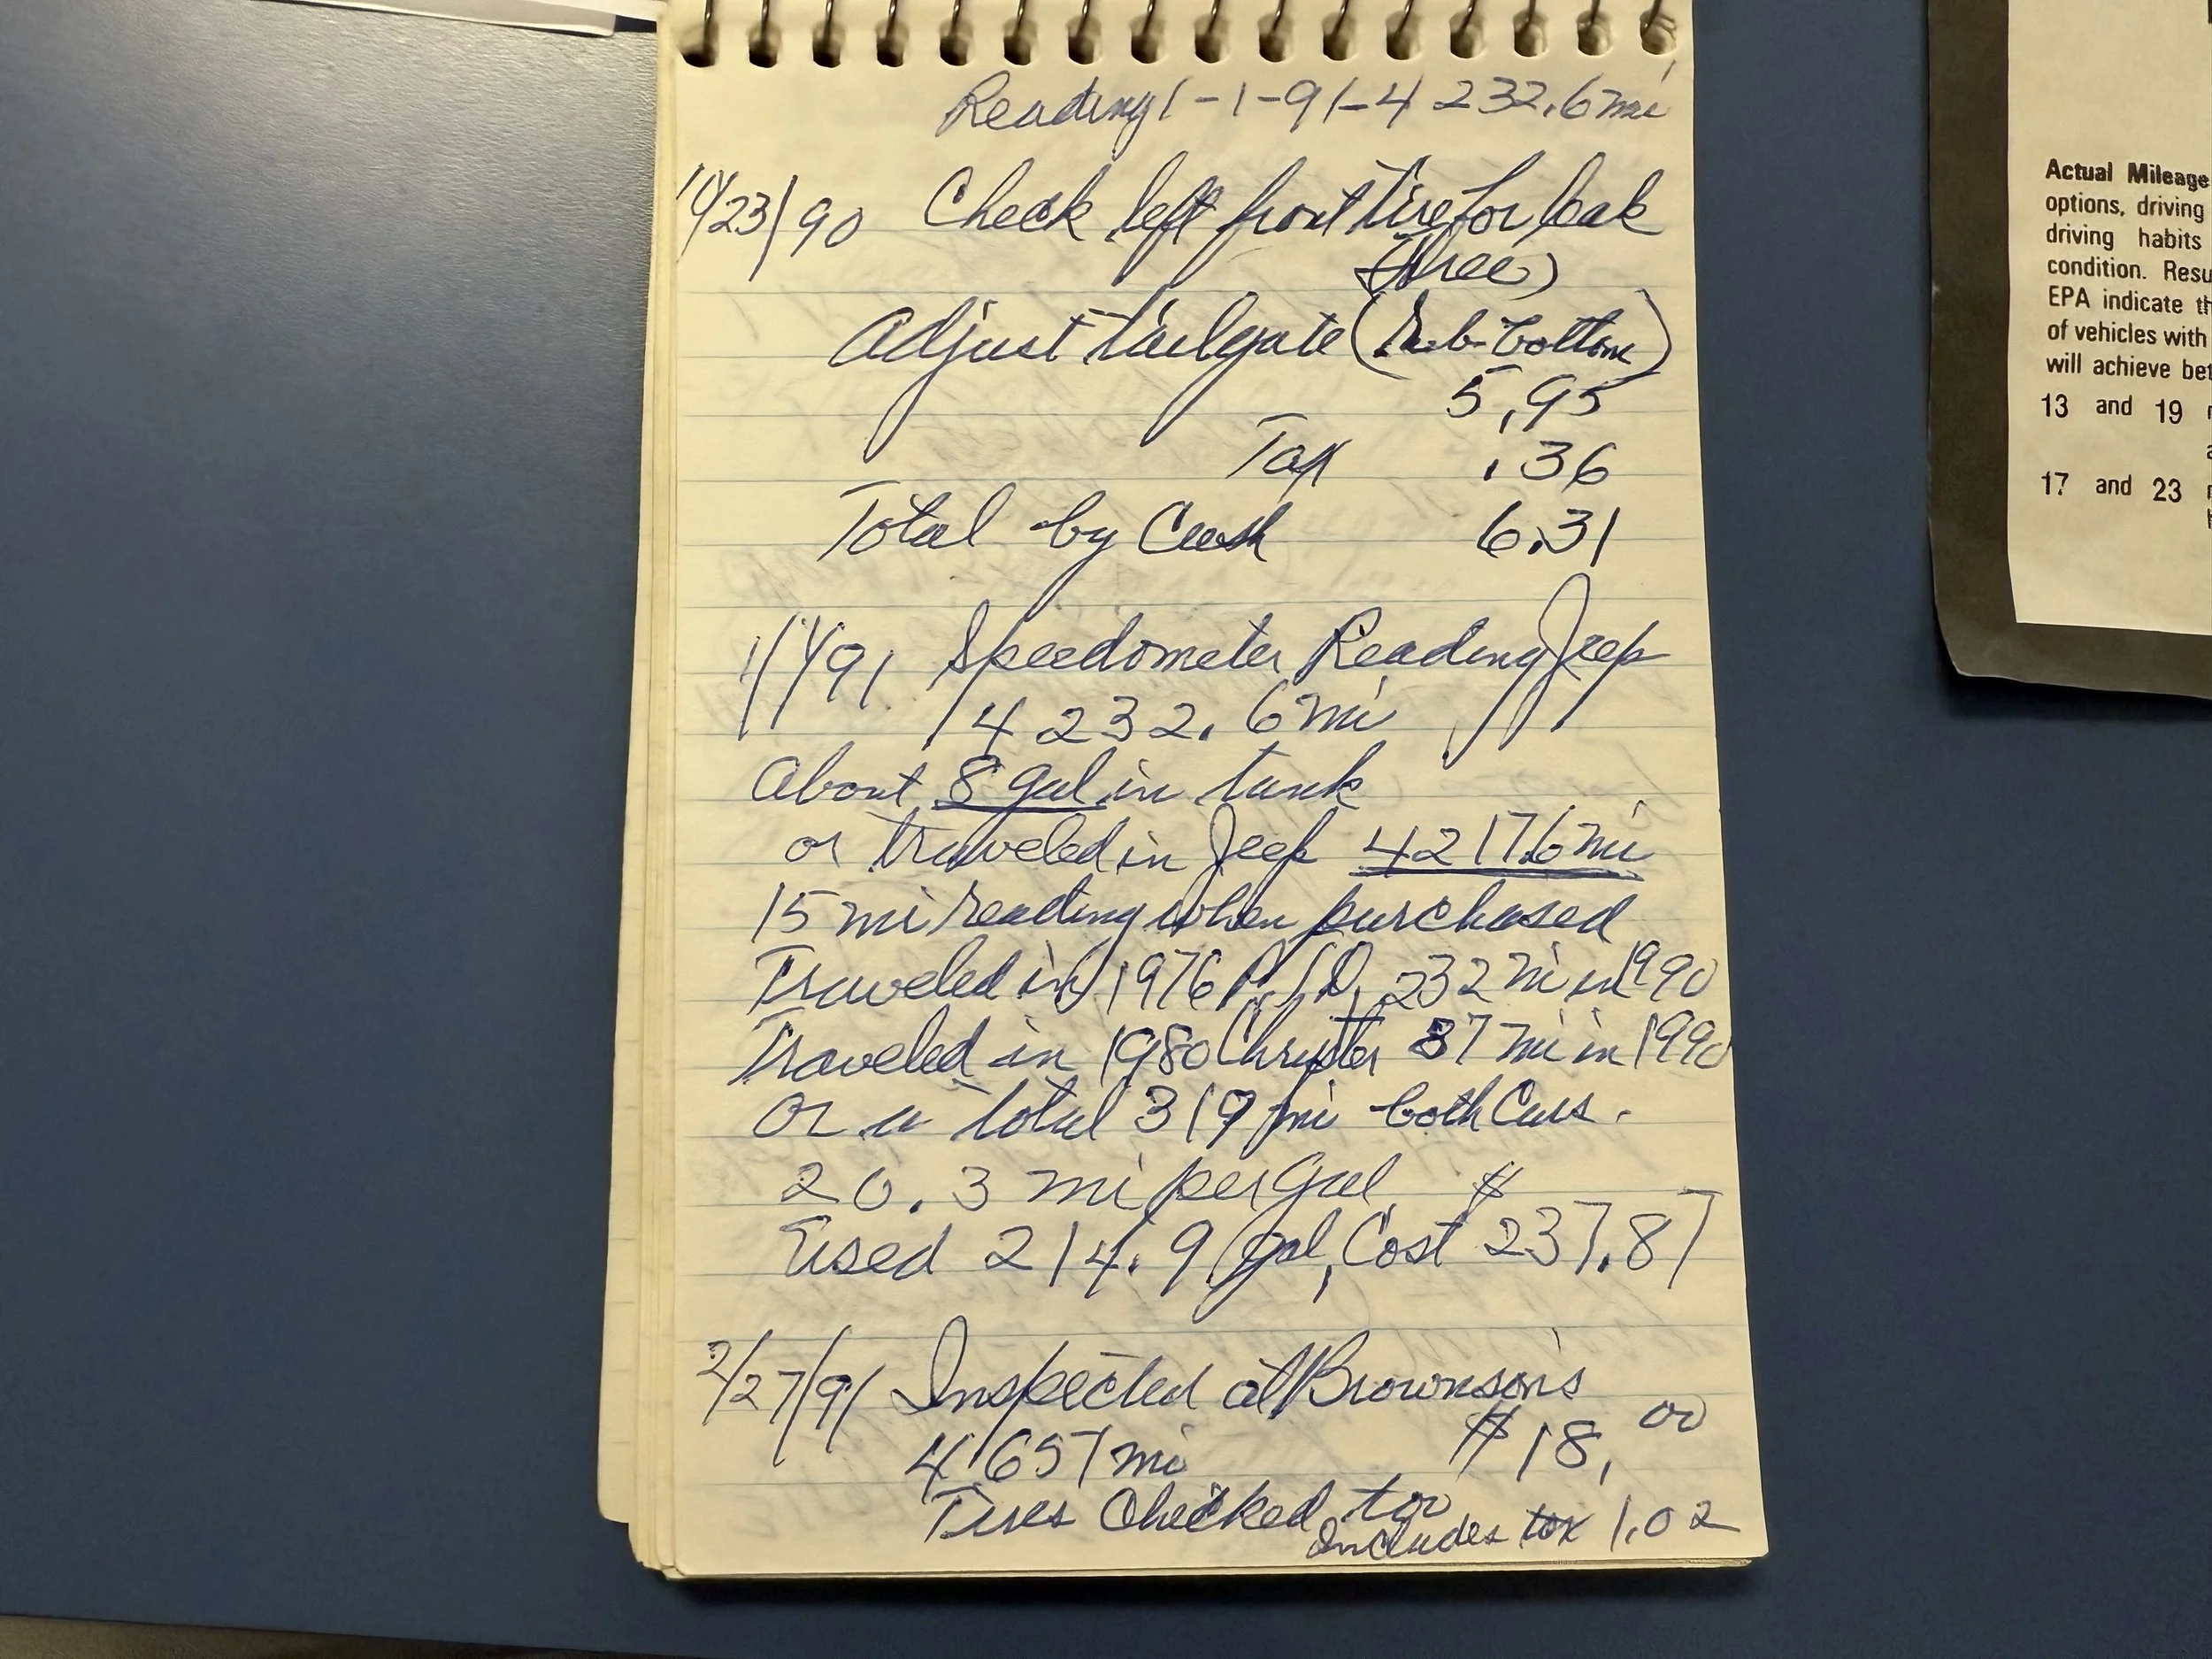 Reading 1-1-91-4 232.6 mi
10/23/90 Check left front tire for leak
(free)
Adjust tailgate (Rub-bottom)
5.95
Tax .36
Total by Cash 6.31
1/1/91 Speedometer Reading Jeep
4 232.6 mi
About 8 gal in tank
or traveled in Jeep 4217.6 mi
15 mi reading when purchased
Traveled in 1976 232 mi in 1990
Traveled in 1980 Chrysler 87 mi in 1990
Or a total 319 mi both Cars.
20.3 mi per gal $
Used 214.9 gal, Cost 237.87
2/27/91 Inspected at Brownson's
4 657 mi $18.00
Tires Checked too
Includes tax 1.02
Actual Mileage
options, driving
driving habits
condition. Resu
EPA indicate th
of vehicles with
will achieve bet
13 and 19
17 and 23